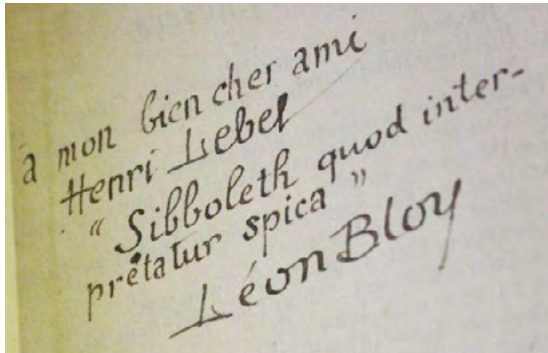 à mon bien cher ami
Henri Lebel
" Sibboleth quod inter-
prêtatur spica "
Léon Bloy